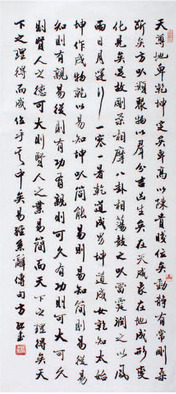 天尊地卑乾坤定矣卑高以陳貴賤位矣動靜有常剛柔
斷矣方以類聚物以群分吉凶生矣在天成象在地成形變
化見矣是故剛柔相摩八卦相蕩鼓之以雷霆潤之以風
雨日月運行一寒一暑乾道成男坤道成女乾知大始
坤作成物乾以易知坤以簡能易則易知簡則易從易
知則有親易從則有功有親則可久有功則可大可久
則賢人之德可大則賢人之業易簡而天下之理得矣天
下之理得而成位乎其中矣易經繫辭